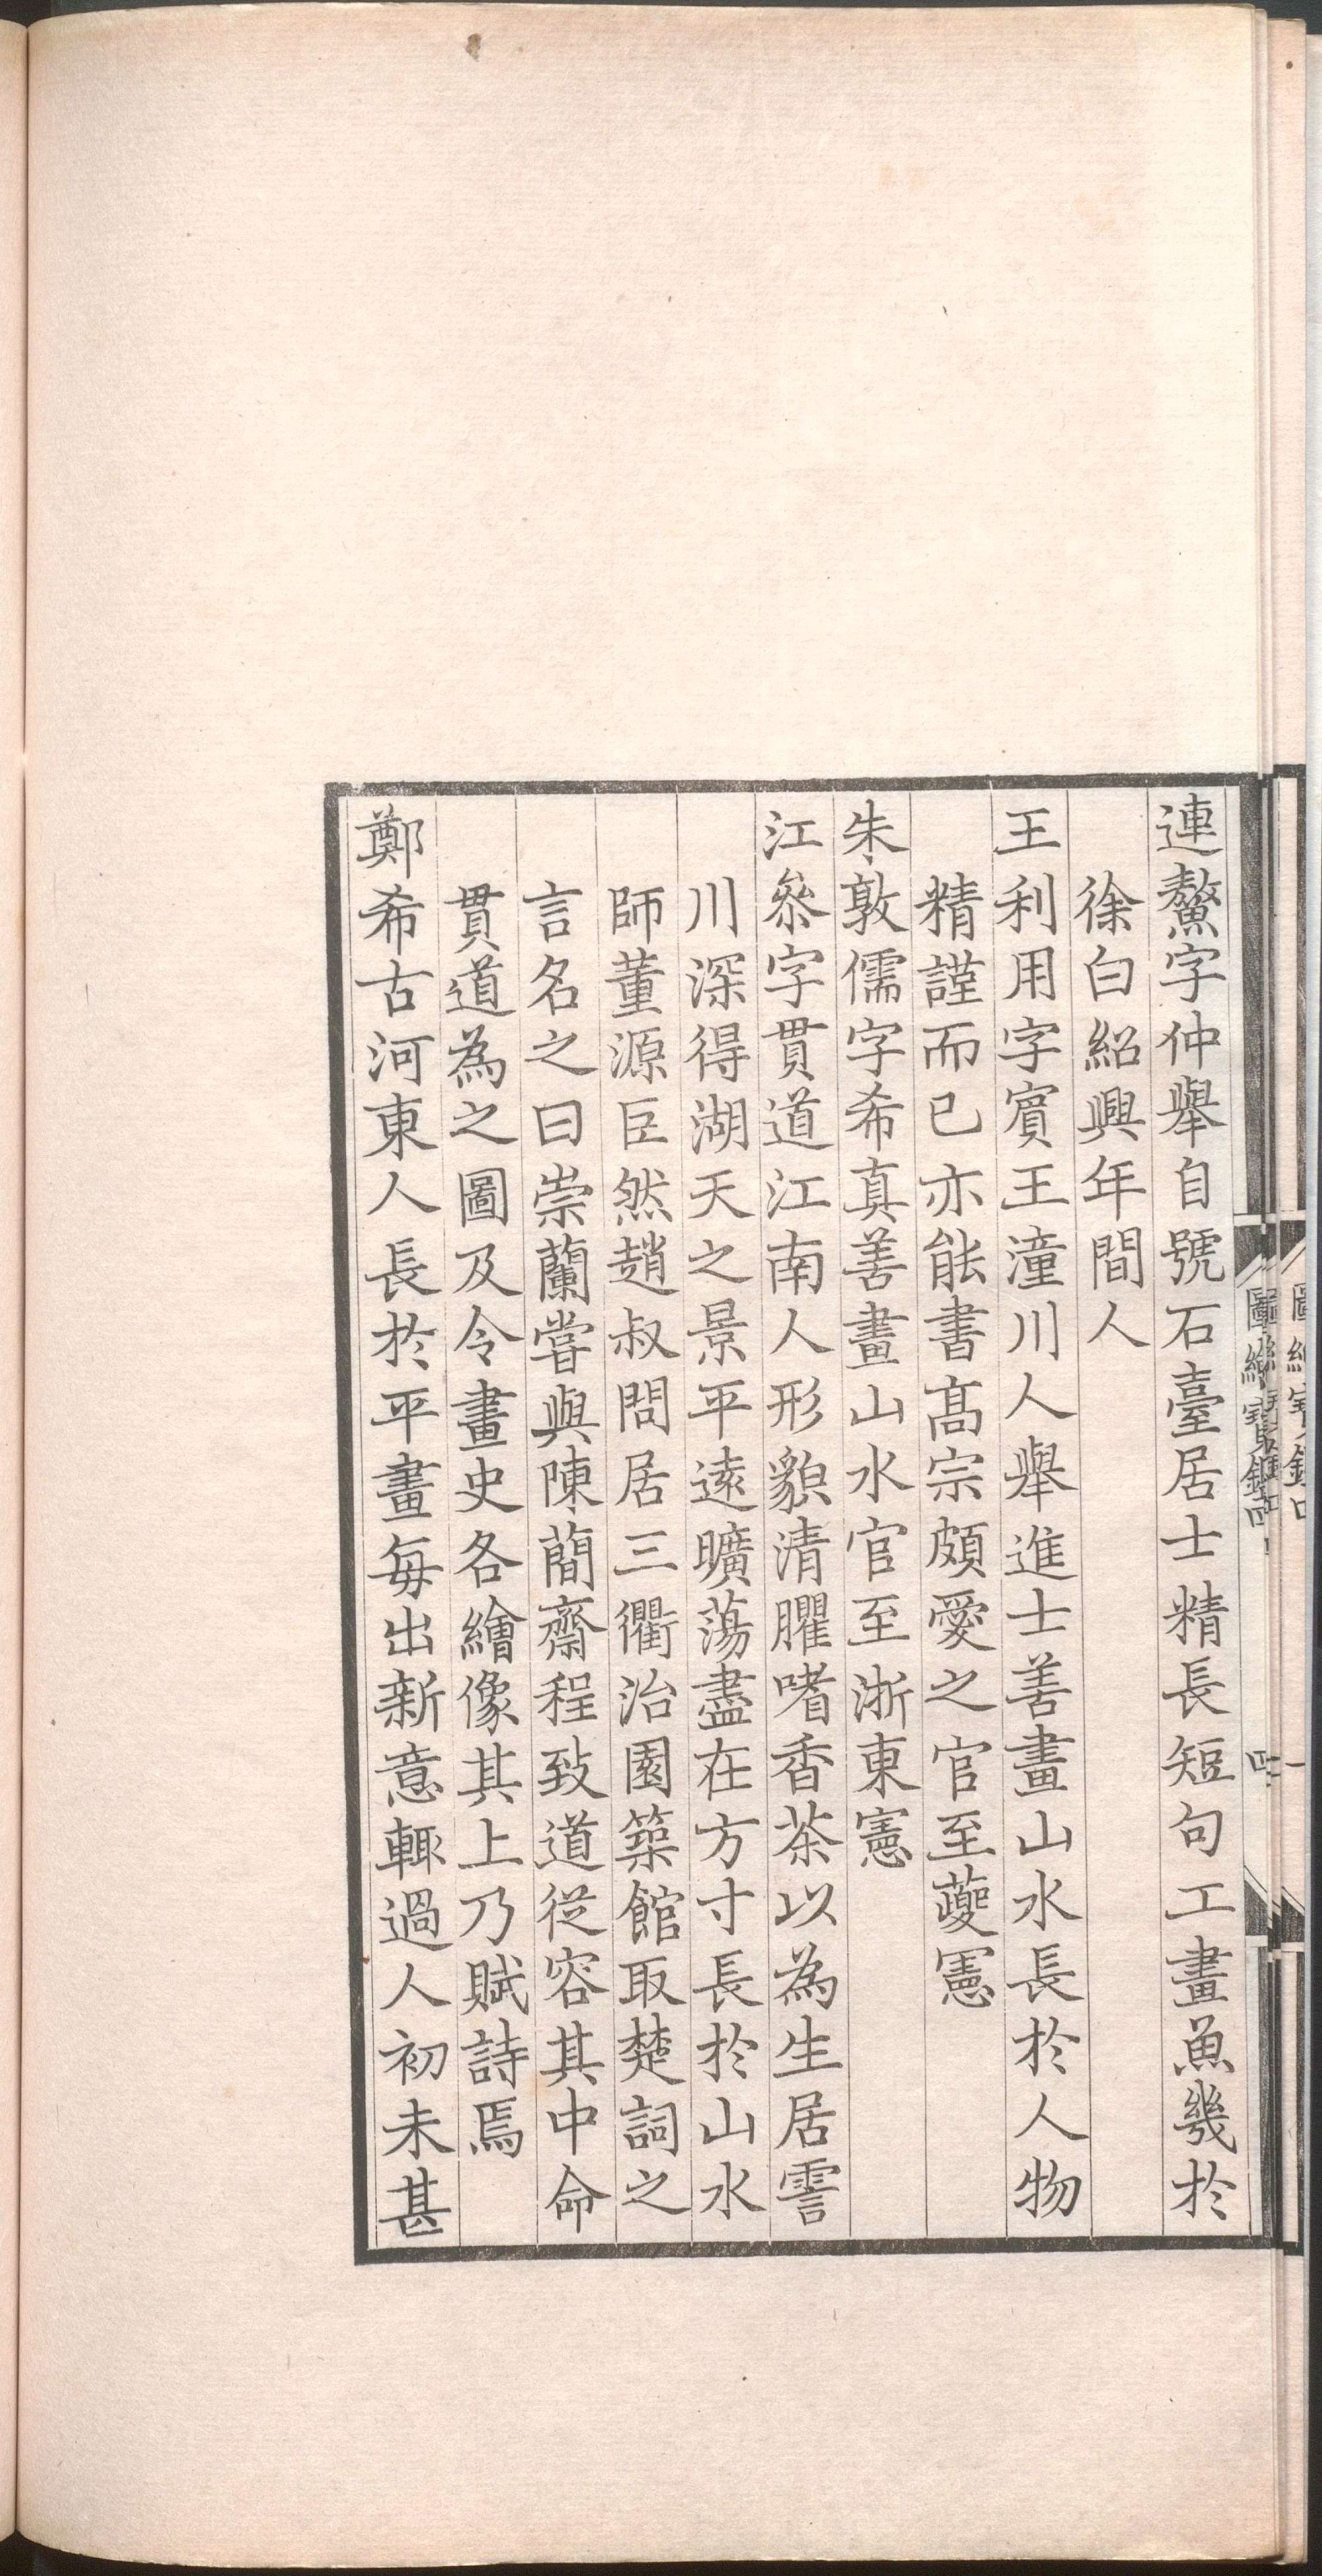 連鰲字仲舉自號石臺居士精長短句工畫魚幾於
徐白紹興年間人
王利用字賓王潼川人舉進士善畫山水長於人物
精謹而已亦能書髙宗頗愛之官至䕫憲
朱敦儒字希真善畫山水官至浙東憲
江叅字貫道江南人形貌清臞嗜香茶以為生居霅
川深得湖天之景平逺曠蕩盡在方寸長於山水
師董源巨然趙叔問居三衢治園築館取楚詞之
言名之曰崇蘭嘗與陳蕳齋程致道從容其中命
貫道為之圖及令畫史各繪像其上乃賦詩焉
鄭希古河東人長於平畫每出新意輒過人初未甚
圖繪寶鑑四
四